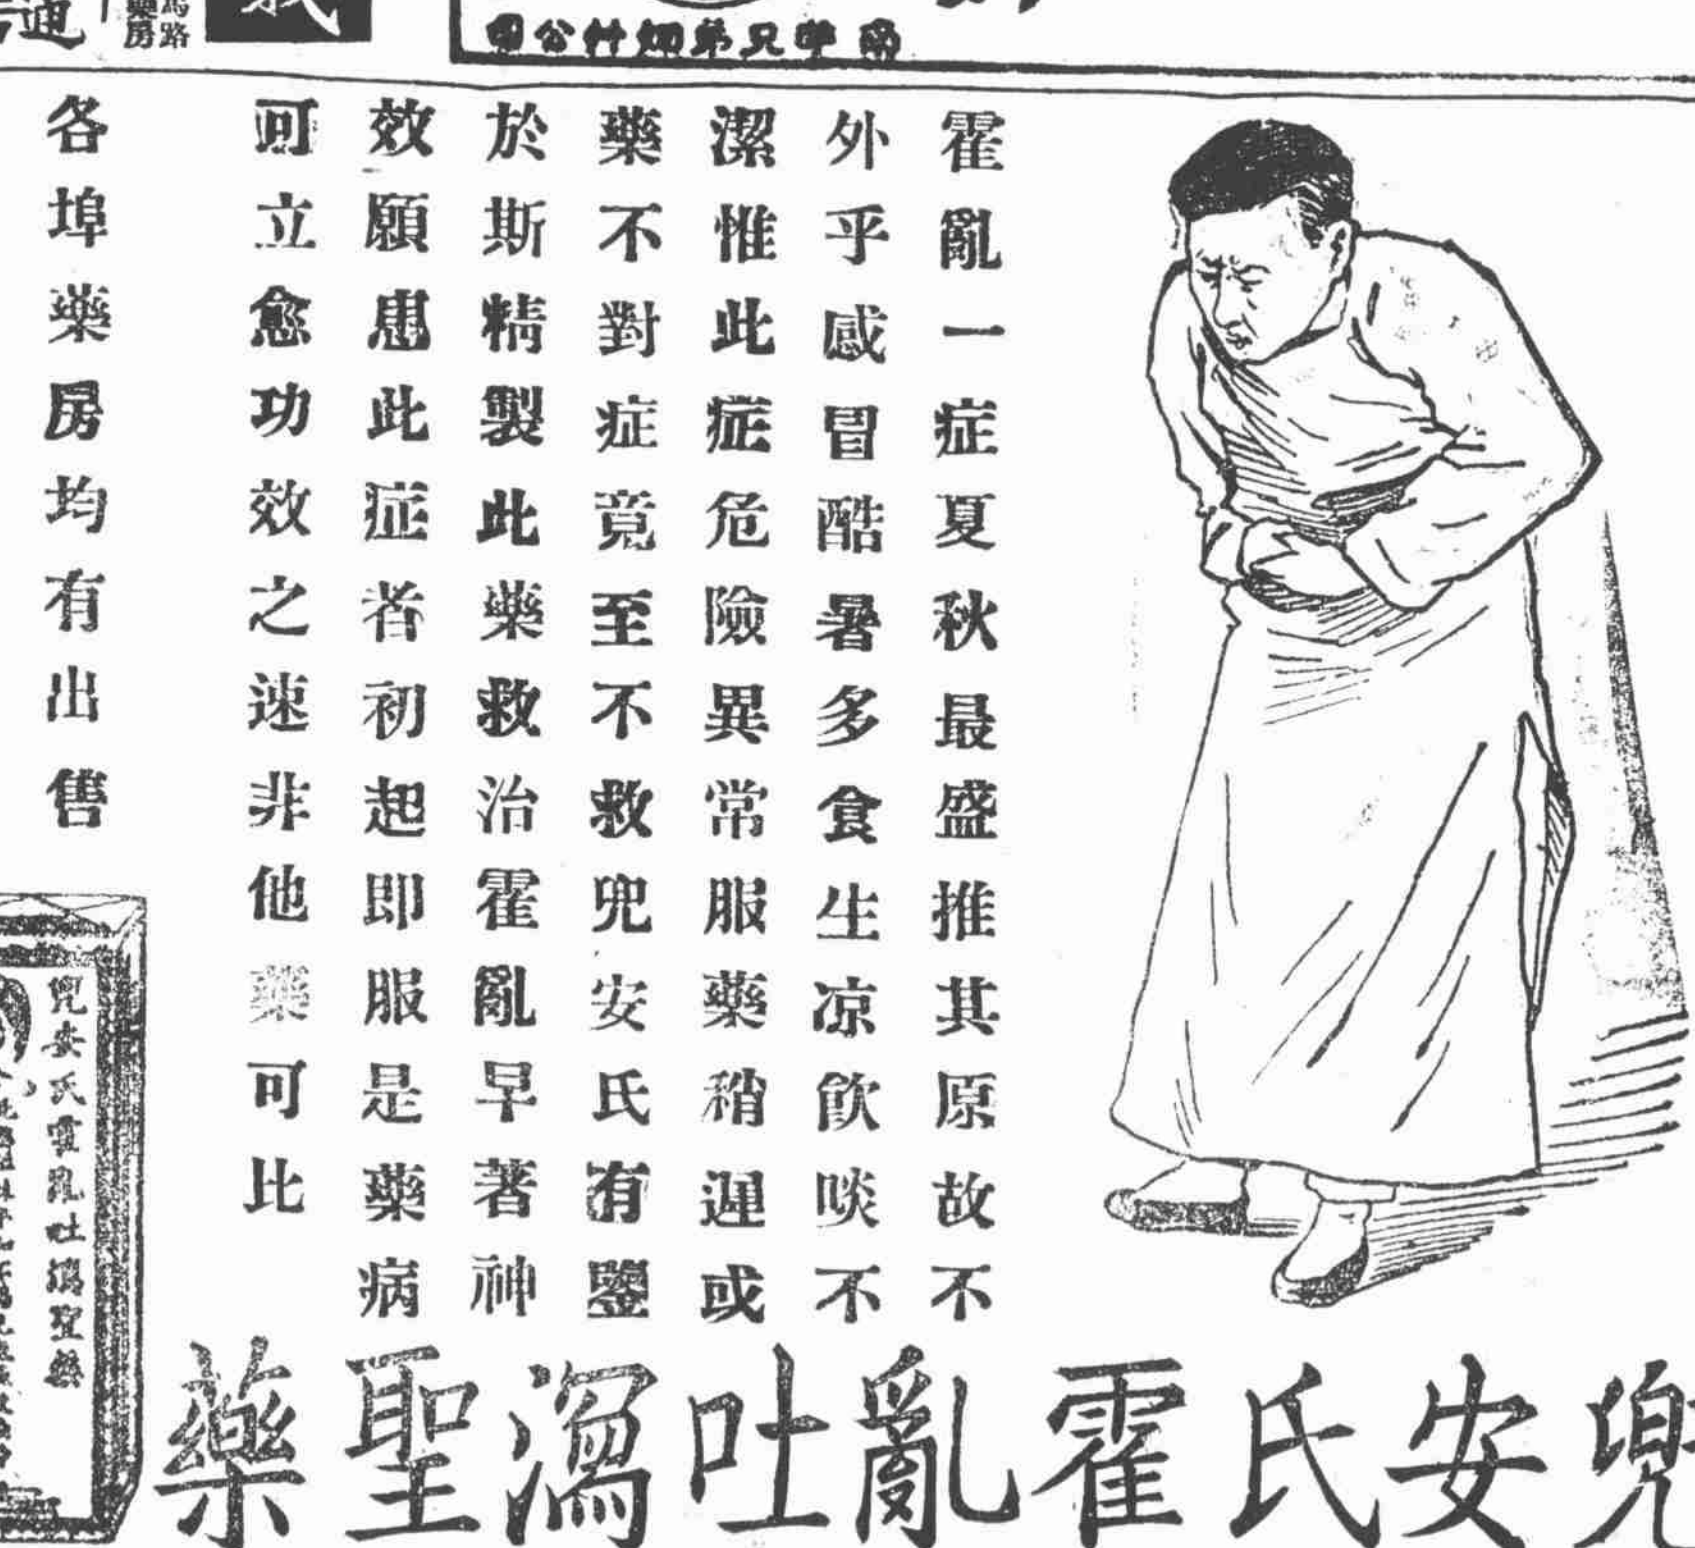 南洋兄弟烟艸公司
霍亂一症夏秋最盛推其原故不
外乎感冒酷暑多食生凉飲啖不
潔惟此症危險異常服藥稍遲或
藥不對症竟至不救兜安氏有鑒
於斯精製此藥救治霍亂早著神
效願患此症者初起即服是藥病
可立愈功效之速非他藥可比
各埠藥房均有出售
兜安氏霍亂吐瀉聖藥
兜安氏霍亂吐瀉聖藥